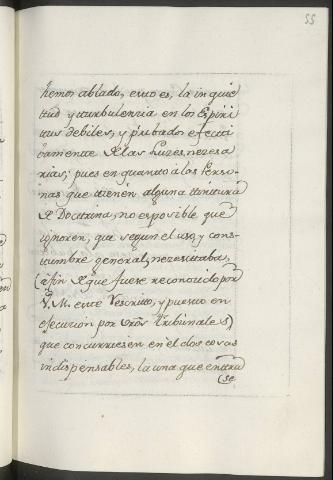 55
hemos ablado, esto es, la inquie
tud y turbulenzia en los Espiri
tus debiles, y pribados efecti
bamente de las Luzes nezesa
rias; pues en quanto á las Perso
nas que tienen alguna tintura
de Doctrina, no es posible que
ignoren, que segun el uso, y cons
tumbre general, nezesitaba,
(afin de que fuese reconocido por
V. M. este Rescrito, y puesto en
ejecucion por vros Tribunales)
que concurriesen en él dos cosas
indispensables, la una que entra
se